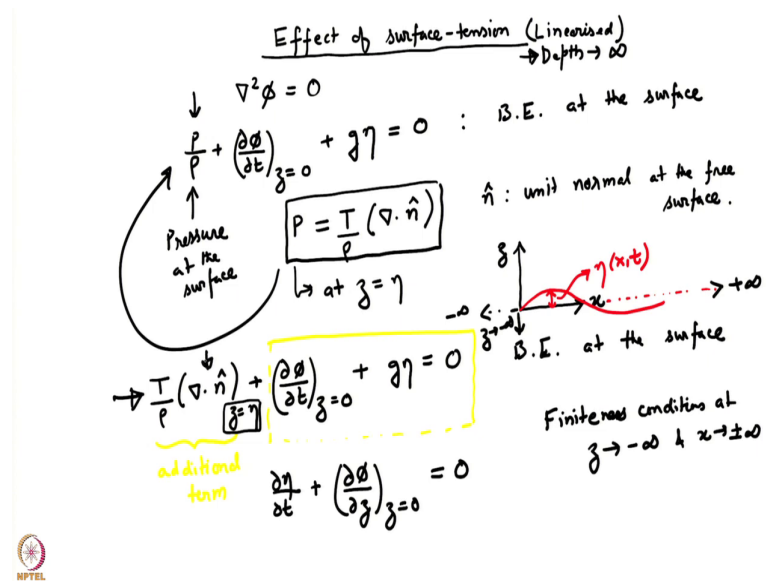 Effect of surface-tension (Linearised)
→ Depth → ∞
∇²φ = 0
P/ρ + (∂φ/∂t)_{z=0} + gη = 0 : B.E. at the surface
Pressure
at the
surface
P = T/ρ (∇·n̂)
↳ at z = η
n̂ : unit normal at the free
surface.
z
η(x,t)
x
-∞
+∞
z→-∞
B.E. at the surface
→ T/ρ (∇·n̂)_{z=η} + (∂φ/∂t)_{z=0} + gη = 0
additional
term
∂η/∂t + (∂φ/∂z)_{z=0} = 0
Finiteness conditions at
z → -∞ & x → ±∞
NPTEL